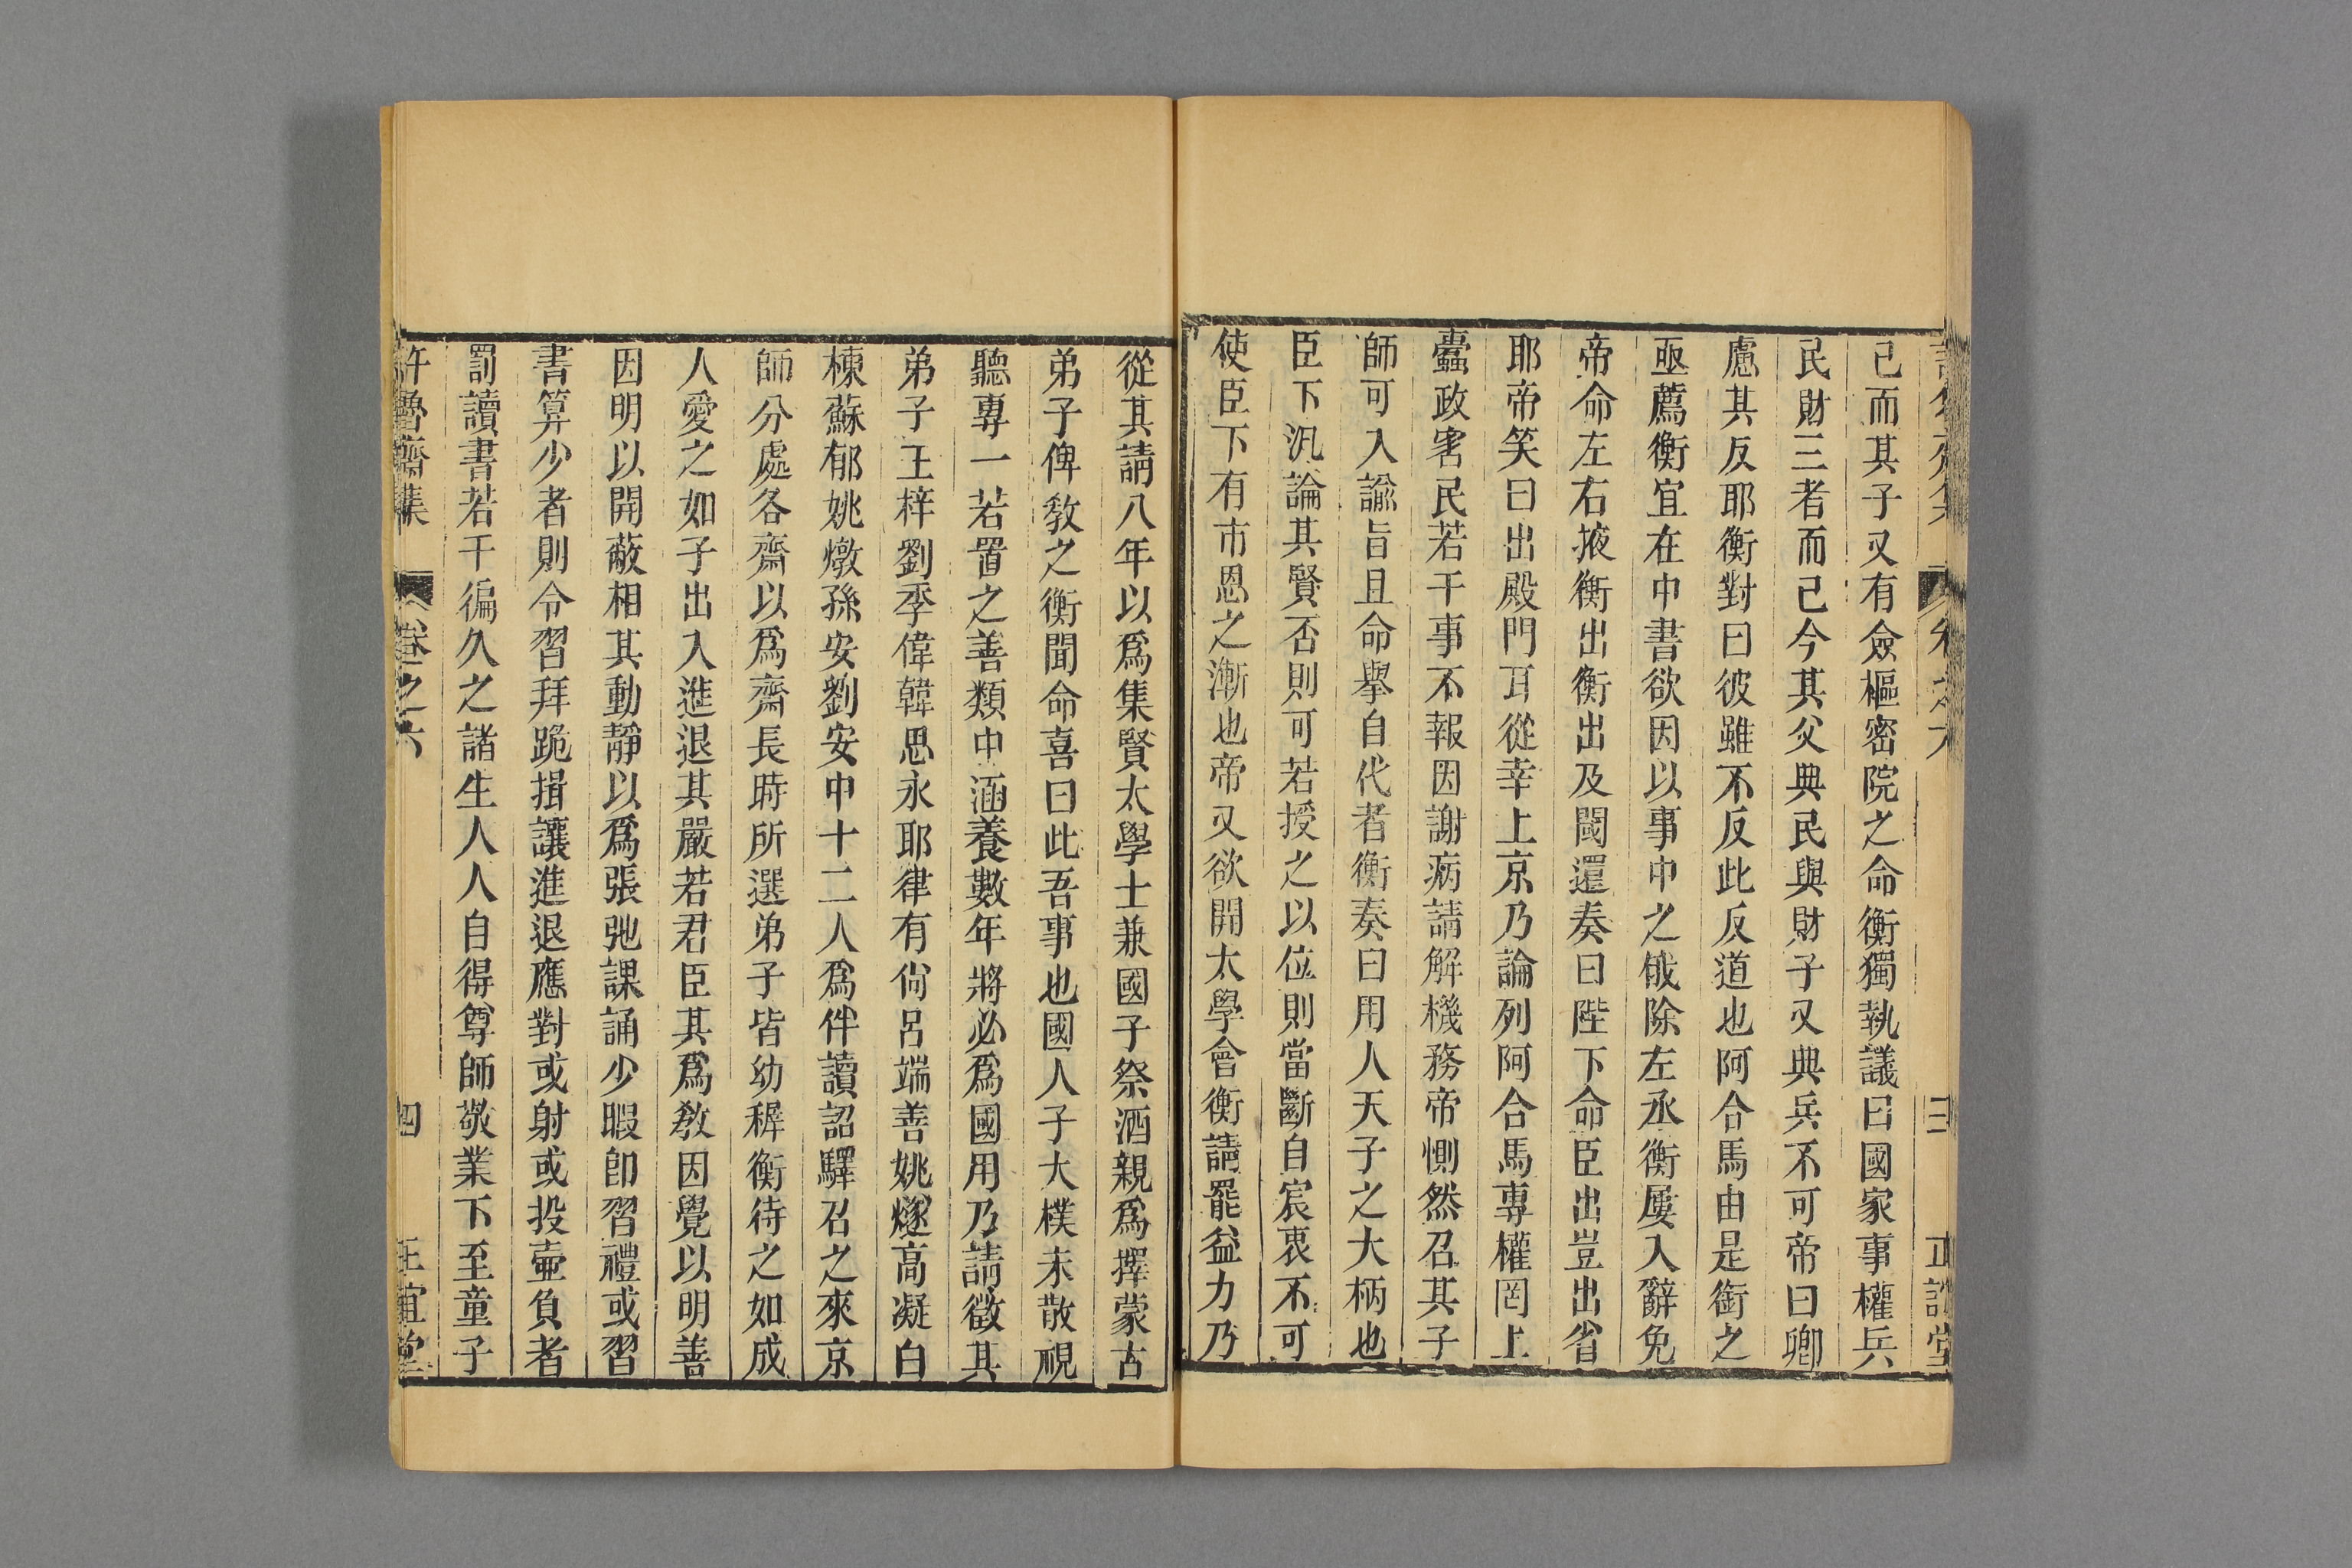 己而其子又有僉樞密院之命衡獨執議曰國家事權兵
民財三者而己今其父典民與財子又典兵不可帝曰卿
慮其反耶衡對曰彼雖不反此反道也阿合馬由是銜之
亟薦衡宜在中書欲因以事中之俄除左丞衡屢入辭免
帝命左右掖衡出衡出及閾還奏曰陛下命臣出豈出省
耶帝笑曰出殿門耳從幸上京乃論列阿合馬專權罔上
蠹政害民若干事不報因謝病請解機務帝惻然召其子
師可入諭旨且命舉自代者衡奏曰用人天子之大柄也
臣下汎論其賢否則可若授之以位則當斷自宸衷不可
使臣下有市恩之漸也帝又欲開太學會衡請罷益力乃
從其請八年以爲集賢太學士兼國子祭酒親爲擇蒙古
弟子俾敎之衡聞命喜曰此吾事也國人子大樸未散視
聽專一若置之善類中涵養數年將必爲國用乃請徵其
弟子王梓劉季偉韓思永耶律有尙呂端善姚燧高凝白
棟蘇郁姚燉孫安劉安中十二人爲伴讀詔驛召之來京
師分處各齋以爲齋長時所選弟子皆幼穉衡待之如成
人愛之如子出入進退其嚴若君臣其爲敎因覺以明善
因明以開蔽相其動靜以爲張弛課誦少暇卽習禮或習
書算少者則令習拜跪揖讓進退應對或射或投壷負者
罰讀書若干徧久之諸生人人自得尊師敬業下至童子
許魯齋集 卷之六 四 正誼堂